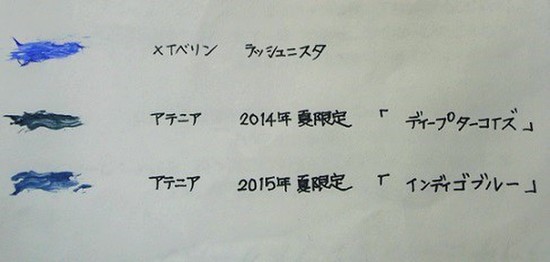 メイベリン ラッシュニスタ
アテニア 2014年 夏限定 「ディープターコイズ」
アテニア 2015年 夏限定 「インディゴブルー」